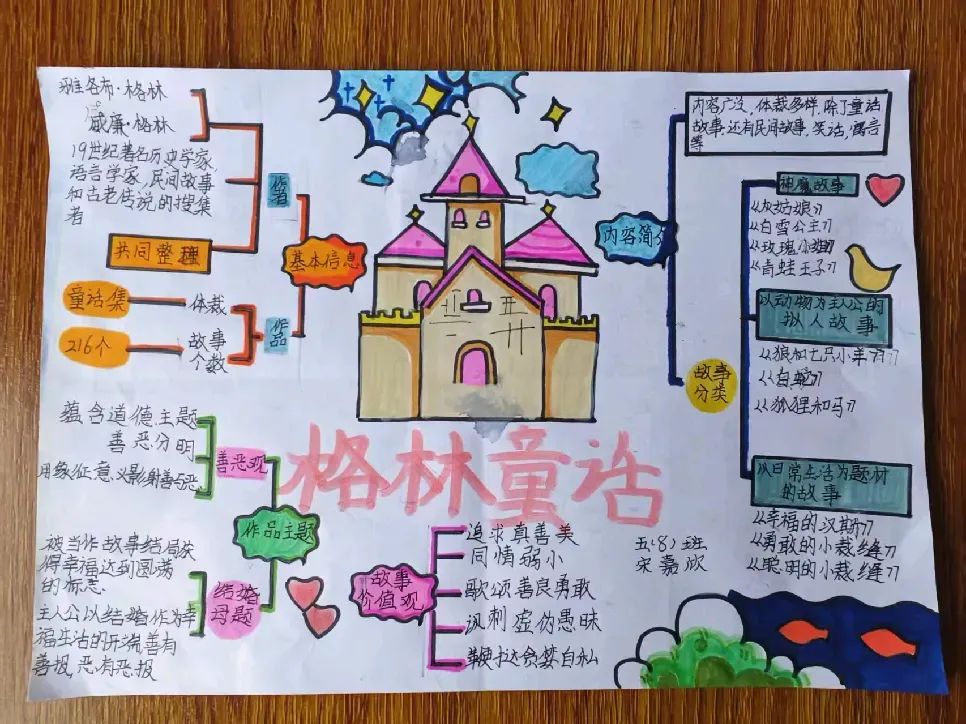 雅各布·格林
威廉·格林
19世纪著名历史学家,
语言学家,民间故事
和古老传说的搜集
者
作者
共同整理
基本信息
童话集
体裁
216个
故事
个数
作品
蕴含道德主题
善恶分明
用象征意义影射善与恶
善恶观
作品主题
被当作故事结局获
得幸福达到圆满
的标志
主人公以结婚作为幸
福生活的开端,善有
善报,恶有恶报
结婚
母题
格林童话
故事
价值观
追求真善美
同情弱小
歌颂善良勇敢
讽刺虚伪愚昧
鞭挞贪婪自私
五(8)班
宋嘉欣
内容简介
内容广泛,体裁多样,除了童话
故事,还有民间故事,笑话,寓言
等
故事
分类
神魔故事
《灰姑娘》
《白雪公主》
《玫瑰小姐》
《青蛙王子》
以动物为主人公的
拟人故事
《狼和七只小羊》
《白蛇》
《狐狸和马》
以日常生活为题材
的故事
《幸福的汉斯》
《勇敢的小裁缝》
《聪明的小裁缝》